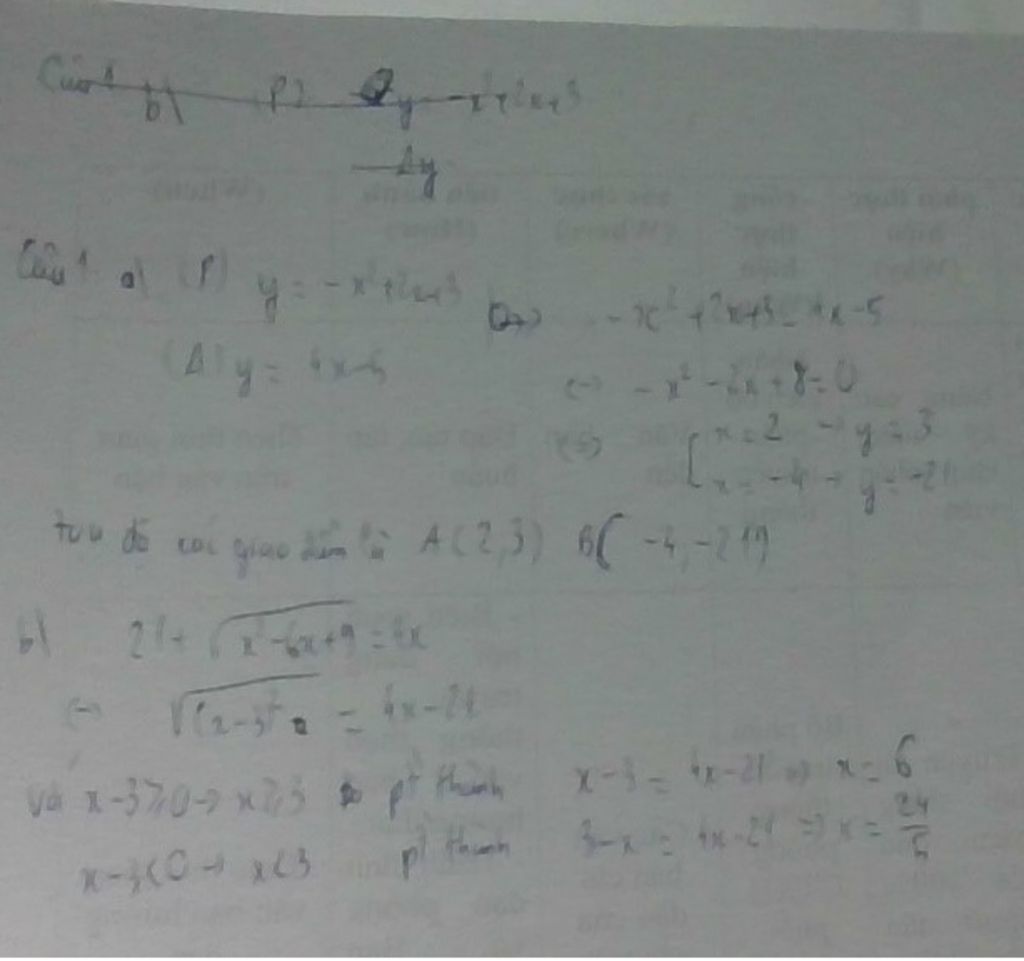 Câu 1 b) (P) y = -x²+2x+3
Δy
Câu 1 a) (P) y = -x²+2x+3
(Δ) y = 4x-5
-x²+2x+3 = 4x-5
<-> -x²-2x+8=0
<=> [ x=2 → y=3
x=-4 → y=-21
toạ độ các giao điểm là A(2,3) B(-4,-21)
b) 21+ √(x²-6x+9) = 4x
<-> √((x-3)²) = 4x-21
với x-3≥0 → x≥3 pt thành x-3 = 4x-21 => x=6
x-3<0 → x<3 pt thành 3-x = 4x-21 => x = 24/5